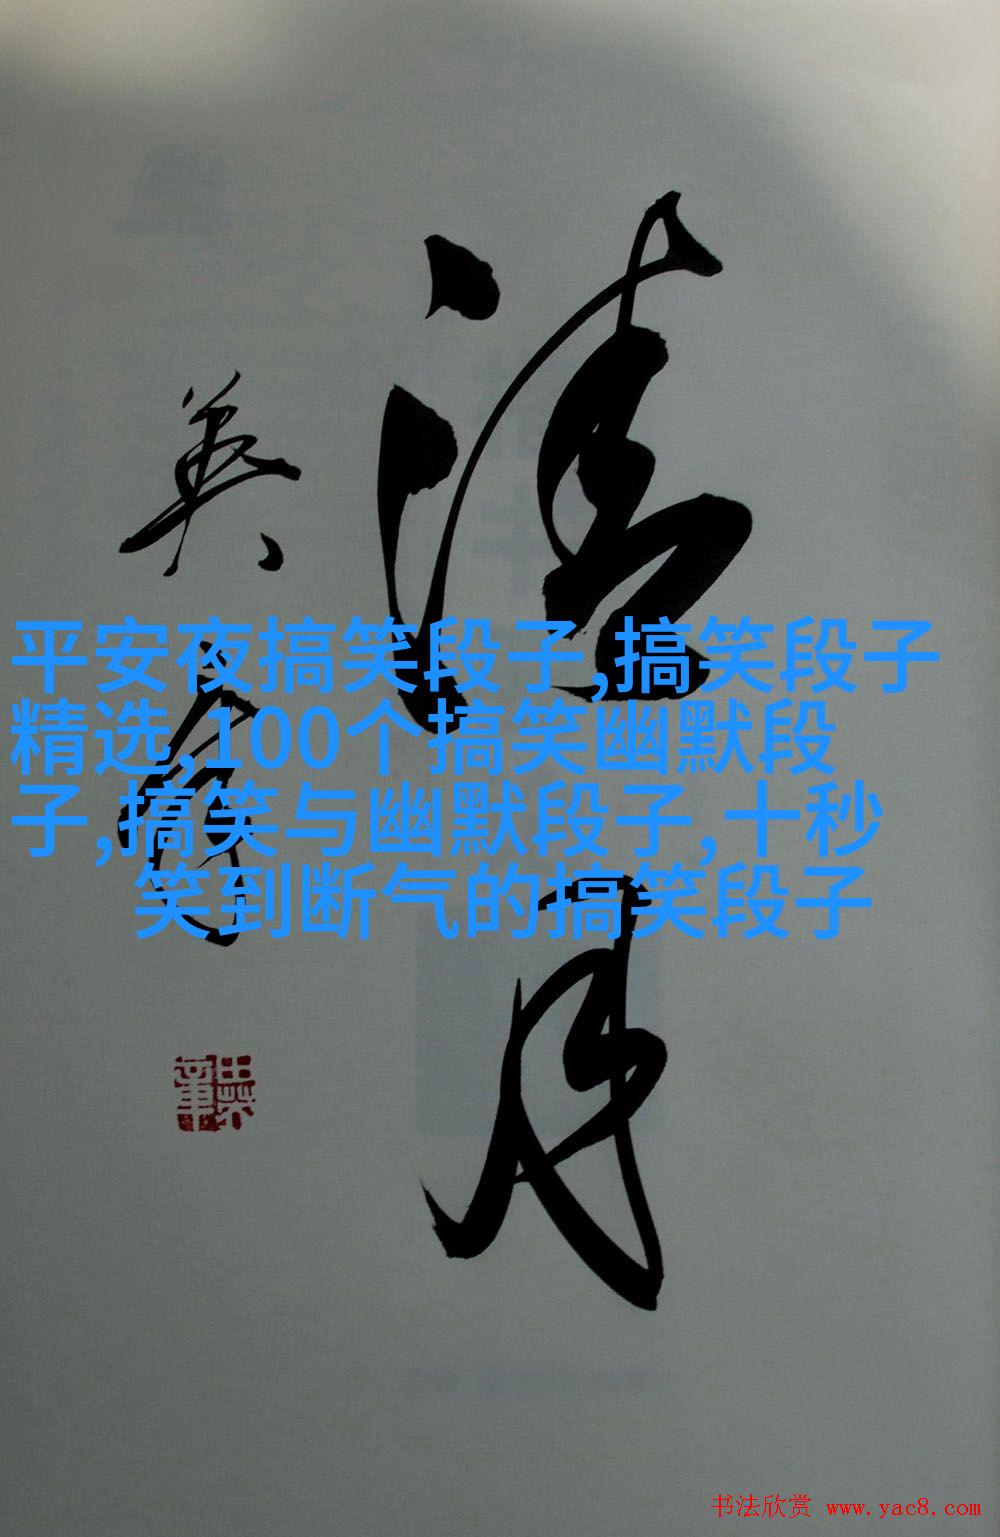 清月
英章
平安夜搞笑段子,搞笑段子
精选,100个搞笑幽默段
子,搞笑与幽默段子,十秒
笑到断气的搞笑段子
书法欣赏 www.yac8.com